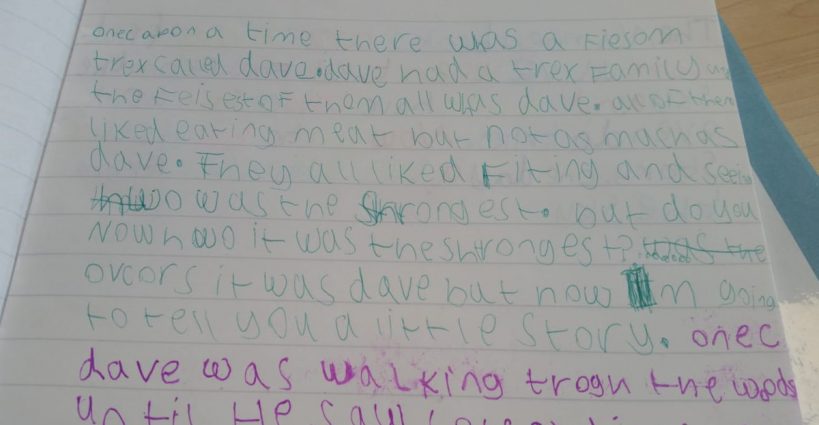 onec apon a time there was a Fiesom
trex called dave. dave had a trex Family
the Feisest of them all whas dave. all of them
liked eating meat but not as much as
dave. They all liked Fiting and
was the shrongest. but do you
Now hoo it was the shrongest?
ovcors it was dave but now going
to tell you a little story. onec
dave was walking trogn the woods
until He